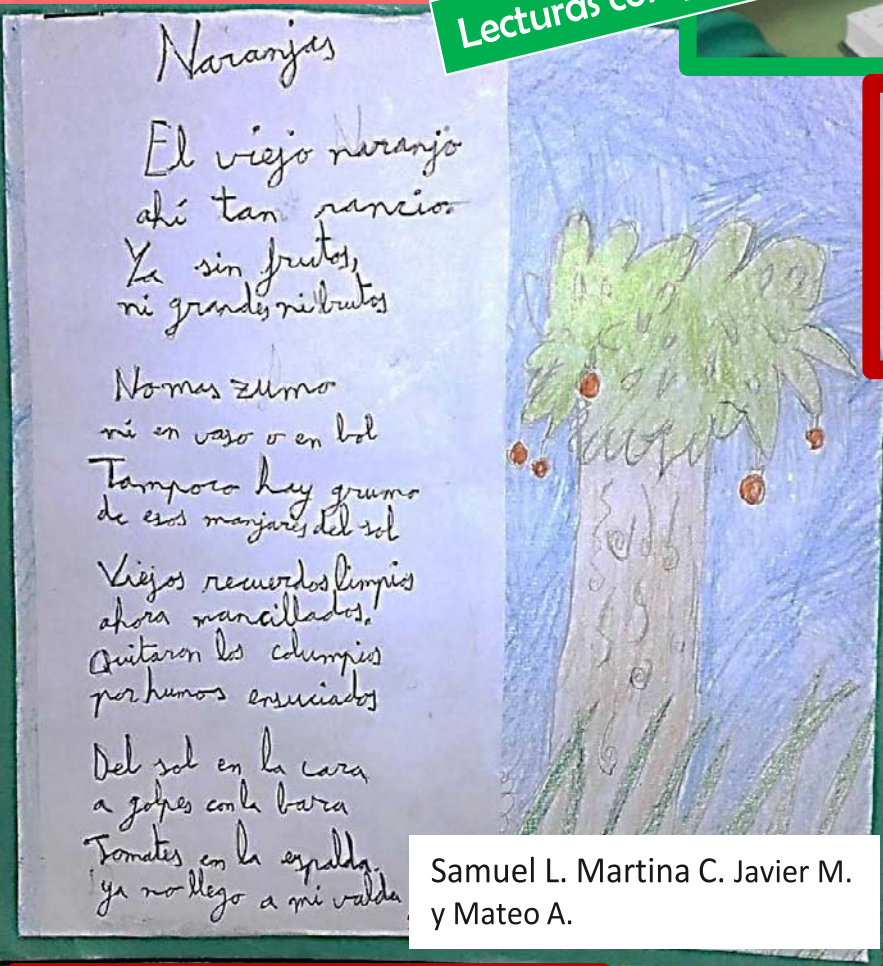 Lecturas
Naranjas
El viejo naranjo
ahí tan rancio
Ya sin frutos,
ni grandes ni brutos
No mas zumo
ni en vaso o en bol
Tampoco hay grumo
de esos manjares del sol
Viejos recuerdos limpios
ahora mancillados,
Quitaron los columpios
por humos ensuciados
Del sol en la cara
a golpes con la bara
Tomates en la espalda
ya no llego a mi valda
Samuel L. Martina C. Javier M.
y Mateo A.